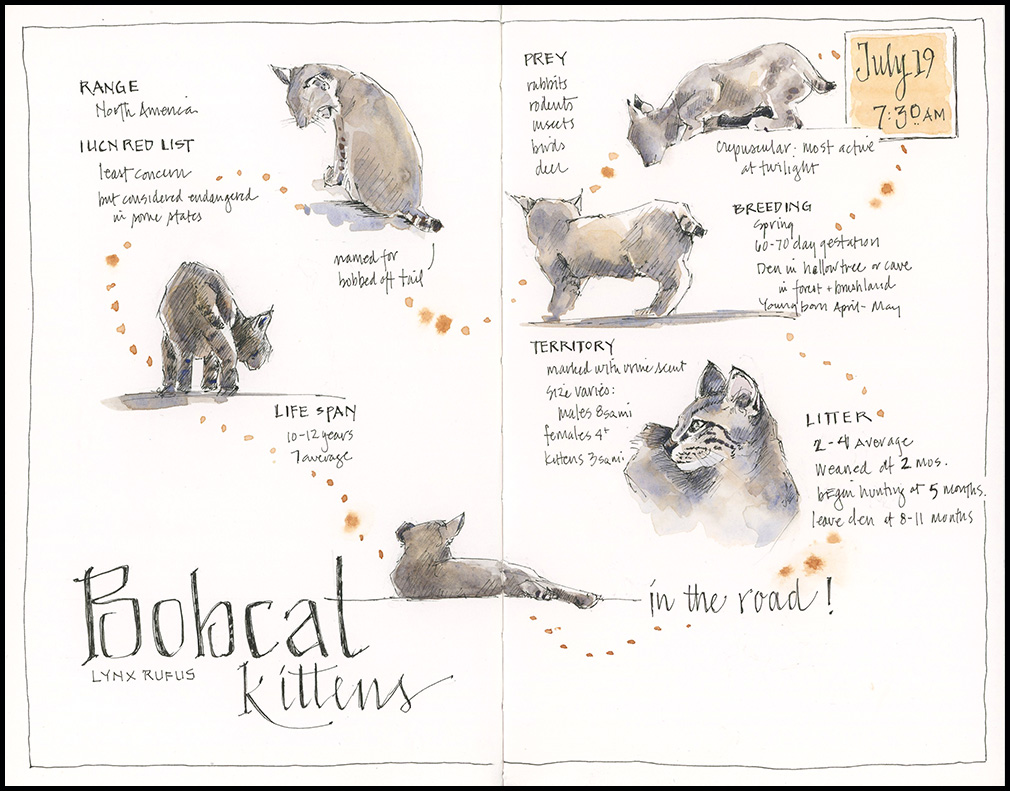 RANGE
North America
IUCN RED LIST
least concern
but considered endangered
in some states
named for
bobbed off tail
LIFE SPAN
10-12 years
7 average
Bobcat
LYNX RUFUS
kittens
PREY
rabbits
rodents
insects
birds
deer
July 19
7:30 AM
crepuscular: most active
at twilight
BREEDING
Spring
60-70 day gestation
Den in hollow tree or cave
in forest + brushland
Young born April-May
TERRITORY
marked with urine scent
size varies:
males 8sqmi
females 4+
kittens 3sqmi
LITTER
2-4 average
weaned at 2 mos.
begin hunting at 5 months.
leave den at 8-11 months
in the road!